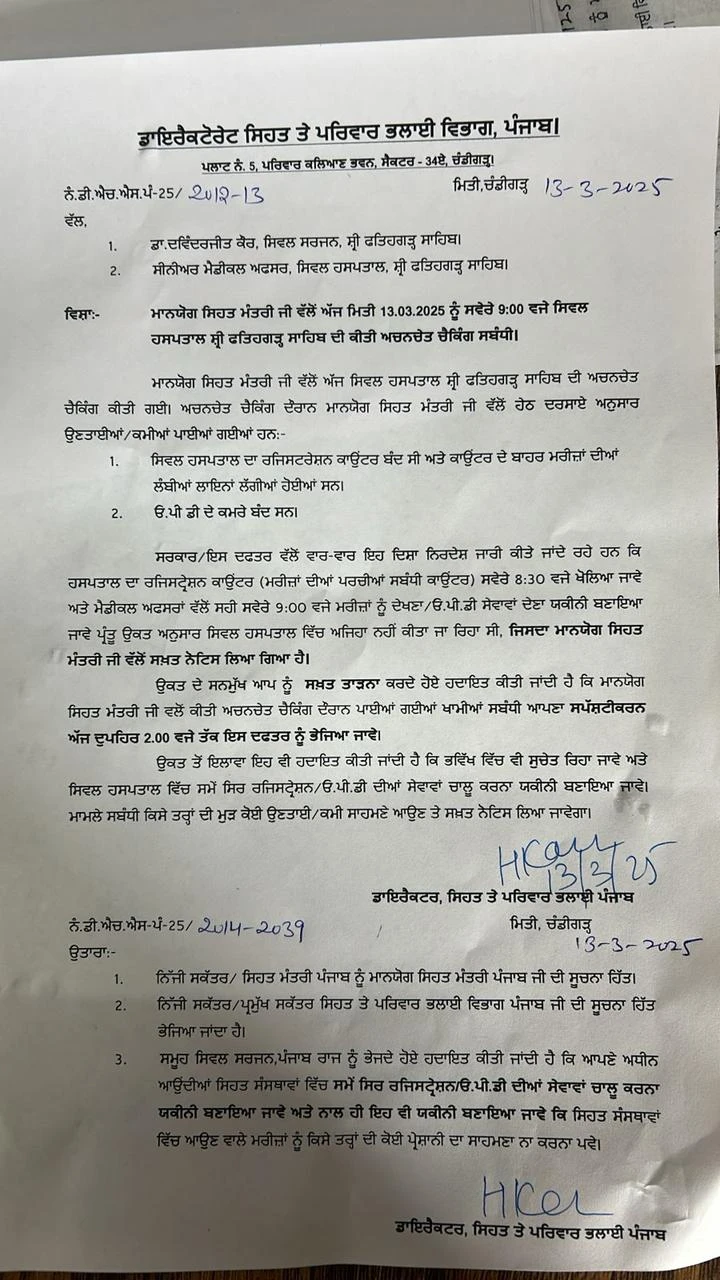 ਡਾਇਰੈਕਟੋਰੇਟ ਸਿਹਤ ਤੇ ਪਰਿਵਾਰ ਭਲਾਈ ਵਿਭਾਗ, ਪੰਜਾਬ।
ਪਲਾਟ ਨੰ. 5, ਪਰਿਵਾਰ ਕਲਿਆਣ ਭਵਨ, ਸੈਕਟਰ - 34ਏ, ਚੰਡੀਗੜ੍ਹ।
ਨੰ.ਡੀ.ਐਚ.ਐਸ.ਪੰ-25/ 2012-13 ਮਿਤੀ,ਚੰਡੀਗੜ੍ਹ 13-3-2025
ਵੱਲ,
1. ਡਾ.ਦਵਿੰਦਰਜੀਤ ਕੌਰ, ਸਿਵਲ ਸਰਜਨ, ਸ਼੍ਰੀ ਫਤਿਹਗੜ੍ਹ ਸਾਹਿਬ।
2. ਸੀਨੀਅਰ ਮੈਡੀਕਲ ਅਫਸਰ, ਸਿਵਲ ਹਸਪਤਾਲ, ਸ਼੍ਰੀ ਫਤਿਹਗੜ੍ਹ ਸਾਹਿਬ।
ਵਿਸ਼ਾ:- ਮਾਨਯੋਗ ਸਿਹਤ ਮੰਤਰੀ ਜੀ ਵੱਲੋਂ ਅੱਜ ਮਿਤੀ 13.03.2025 ਨੂੰ ਸਵੇਰੇ 9:00 ਵਜੇ ਸਿਵਲ
ਹਸਪਤਾਲ ਸ਼੍ਰੀ ਫਤਿਹਗੜ੍ਹ ਸਾਹਿਬ ਦੀ ਕੀਤੀ ਅਚਨਚੇਤ ਚੈਕਿੰਗ ਸਬੰਧੀ।
ਮਾਨਯੋਗ ਸਿਹਤ ਮੰਤਰੀ ਜੀ ਵੱਲੋਂ ਅੱਜ ਸਿਵਲ ਹਸਪਤਾਲ ਸ਼੍ਰੀ ਫਤਿਹਗੜ੍ਹ ਸਾਹਿਬ ਦੀ ਅਚਨਚੇਤ
ਚੈਕਿੰਗ ਕੀਤੀ ਗਈ। ਅਚਨਚੇਤ ਚੈਕਿੰਗ ਦੌਰਾਨ ਮਾਨਯੋਗ ਸਿਹਤ ਮੰਤਰੀ ਜੀ ਵੱਲੋਂ ਹੇਠ ਦਰਸਾਏ ਅਨੁਸਾਰ
ਉਣਤਾਈਆਂ/ਕਮੀਆਂ ਪਾਈਆਂ ਗਈਆਂ ਹਨ:-
1. ਸਿਵਲ ਹਸਪਤਾਲ ਦਾ ਰਜਿਸਟਰੇਸ਼ਨ ਕਾਉਂਟਰ ਬੰਦ ਸੀ ਅਤੇ ਕਾਉਂਟਰ ਦੇ ਬਾਹਰ ਮਰੀਜ਼ਾਂ ਦੀਆਂ
ਲੰਬੀਆਂ ਲਾਇਨਾਂ ਲੱਗੀਆਂ ਹੋਈਆਂ ਸਨ।
2. ਓ.ਪੀ ਡੀ ਦੇ ਕਮਰੇ ਬੰਦ ਸਨ।
ਸਰਕਾਰ/ਇਸ ਦਫਤਰ ਵੱਲੋਂ ਵਾਰ-ਵਾਰ ਇਹ ਦਿਸ਼ਾ ਨਿਰਦੇਸ਼ ਜਾਰੀ ਕੀਤੇ ਜਾਂਦੇ ਰਹੇ ਹਨ ਕਿ
ਹਸਪਤਾਲ ਦਾ ਰਜਿਸਟ੍ਰੇਸ਼ਨ ਕਾਉਂਟਰ (ਮਰੀਜ਼ਾਂ ਦੀਆਂ ਪਰਚੀਆਂ ਸਬੰਧੀ ਕਾਉਂਟਰ) ਸਵੇਰੇ 8:30 ਵਜੇ ਖੋਲਿਆ ਜਾਵੇ
ਅਤੇ ਮੈਡੀਕਲ ਅਫਸਰਾਂ ਵੱਲੋਂ ਸਹੀ ਸਵੇਰੇ 9:00 ਵਜੇ ਮਰੀਜ਼ਾਂ ਨੂੰ ਦੇਖਣਾ/ਓ.ਪੀ.ਡੀ ਸੇਵਾਵਾਂ ਦੇਣਾ ਯਕੀਨੀ ਬਣਾਇਆ
ਜਾਵੇ ਪ੍ਰੰਤੂ ਉਕਤ ਅਨੁਸਾਰ ਸਿਵਲ ਹਸਪਤਾਲ ਵਿੱਚ ਅਜਿਹਾ ਨਹੀਂ ਕੀਤਾ ਜਾ ਰਿਹਾ ਸੀ, ਜਿਸਦਾ ਮਾਨਯੋਗ ਸਿਹਤ
ਮੰਤਰੀ ਜੀ ਵੱਲੋਂ ਸਖ਼ਤ ਨੋਟਿਸ ਲਿਆ ਗਿਆ ਹੈ।
ਉਕਤ ਦੇ ਸਨਮੁੱਖ ਆਪ ਨੂੰ ਸਖ਼ਤ ਤਾੜਨਾ ਕਰਦੇ ਹੋਏ ਹਦਾਇਤ ਕੀਤੀ ਜਾਂਦੀ ਹੈ ਕਿ ਮਾਨਯੋਗ
ਸਿਹਤ ਮੰਤਰੀ ਜੀ ਵਲੋਂ ਕੀਤੀ ਅਚਨਚੇਤ ਚੈਕਿੰਗ ਦੌਰਾਨ ਪਾਈਆਂ ਗਈਆਂ ਖਾਮੀਆਂ ਸਬੰਧੀ ਆਪਣਾ ਸਪੱਸ਼ਟੀਕਰਨ
ਅੱਜ ਦੁਪਹਿਰ 2.00 ਵਜੇ ਤੱਕ ਇਸ ਦਫਤਰ ਨੂੰ ਭੇਜਿਆ ਜਾਵੇ।
ਉਕਤ ਤੋਂ ਇਲਾਵਾ ਇਹ ਵੀ ਹਦਾਇਤ ਕੀਤੀ ਜਾਂਦੀ ਹੈ ਕਿ ਭਵਿੱਖ ਵਿੱਚ ਵੀ ਸੁਚੇਤ ਰਿਹਾ ਜਾਵੇ ਅਤੇ
ਸਿਵਲ ਹਸਪਤਾਲ ਵਿੱਚ ਸਮੇਂ ਸਿਰ ਰਜਿਸਟ੍ਰੇਸ਼ਨ/ਓ.ਪੀ.ਡੀ ਦੀਆਂ ਸੇਵਾਵਾਂ ਚਾਲੂ ਕਰਨਾ ਯਕੀਨੀ ਬਣਾਇਆ ਜਾਵੇ।
ਮਾਮਲੇ ਸਬੰਧੀ ਕਿਸੇ ਤਰ੍ਹਾਂ ਦੀ ਮੁੜ ਕੋਈ ਉਣਤਾਈ/ਕਮੀ ਸਾਹਮਣੇ ਆਉਣ ਤੇ ਸਖ਼ਤ ਨੋਟਿਸ ਲਿਆ ਜਾਵੇਗਾ।
13/3/25
ਡਾਇਰੈਕਟਰ, ਸਿਹਤ ਤੇ ਪਰਿਵਾਰ ਭਲਾਈ ਪੰਜਾਬ
ਨੰ.ਡੀ.ਐਚ.ਐਸ-ਪੰ-25/ 2014-2039 ਮਿਤੀ, ਚੰਡੀਗੜ੍ਹ
13-3-2025
ਉਤਾਰਾ:-
1. ਨਿੱਜੀ ਸਕੱਤਰ/ ਸਿਹਤ ਮੰਤਰੀ ਪੰਜਾਬ ਨੂੰ ਮਾਨਯੋਗ ਸਿਹਤ ਮੰਤਰੀ ਪੰਜਾਬ ਜੀ ਦੀ ਸੂਚਨਾ ਹਿੱਤ।
2. ਨਿੱਜੀ ਸਕੱਤਰ/ਪ੍ਰਮੁੱਖ ਸਕੱਤਰ ਸਿਹਤ ਤੇ ਪਰਿਵਾਰ ਭਲਾਈ ਵਿਭਾਗ ਪੰਜਾਬ ਜੀ ਦੀ ਸੂਚਨਾ ਹਿੱਤ
ਭੇਜਿਆ ਜਾਂਦਾ ਹੈ।
3. ਸਮੂਹ ਸਿਵਲ ਸਰਜਨ,ਪੰਜਾਬ ਰਾਜ ਨੂੰ ਭੇਜਦੇ ਹੋਏ ਹਦਾਇਤ ਕੀਤੀ ਜਾਂਦੀ ਹੈ ਕਿ ਆਪਣੇ ਅਧੀਨ
ਆਉਂਦੀਆਂ ਸਿਹਤ ਸੰਸਥਾਵਾਂ ਵਿੱਚ ਸਮੇਂ ਸਿਰ ਰਜਿਸਟ੍ਰੇਸ਼ਨ/ਓ.ਪੀ.ਡੀ ਦੀਆਂ ਸੇਵਾਵਾਂ ਚਾਲੂ ਕਰਨਾ
ਯਕੀਨੀ ਬਣਾਇਆ ਜਾਵੇ ਅਤੇ ਨਾਲ ਹੀ ਇਹ ਵੀ ਯਕੀਨੀ ਬਣਾਇਆ ਜਾਵੇ ਕਿ ਸਿਹਤ ਸੰਸਥਾਵਾਂ
ਵਿੱਚ ਆਉਣ ਵਾਲੇ ਮਰੀਜਾਂ ਨੂੰ ਕਿਸੇ ਤਰ੍ਹਾਂ ਦੀ ਕੋਈ ਪ੍ਰੇਸ਼ਾਨੀ ਦਾ ਸਾਹਮਣਾ ਨਾ ਕਰਨਾ ਪਵੇ।
ਡਾਇਰੈਕਟਰ, ਸਿਹਤ ਤੇ ਪਰਿਵਾਰ ਭਲਾਈ ਪੰਜਾਬ